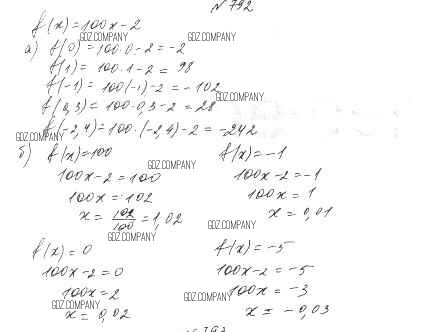 № 792
f(x)=100x-2
GDZ.COMPANY GDZ.COMPANY
а) f(0)=100·0-2=-2
f(1)=100·1-2=98
f(-1)=100(-1)-2=-102
GDZ.COMPANY
f(0,3)=100·0,3-2=28
f(-2,4)=100·(-2,4)-2=-242
GDZ.COMPANY
б) f(x)=100
GDZ.COMPANY
100x-2=100
100x=102
x=102/100=1,02
GDZ.COMPANY
f(x)=-1
100x-2=-1
100x=1
x=0,01
GDZ.COMPANY
f(x)=0
100x-2=0
100x=2
GDZ.COMPANY
x=0,02
f(x)=-5
100x-2=-5
100x=-3
GDZ.COMPANY
x=-0,03